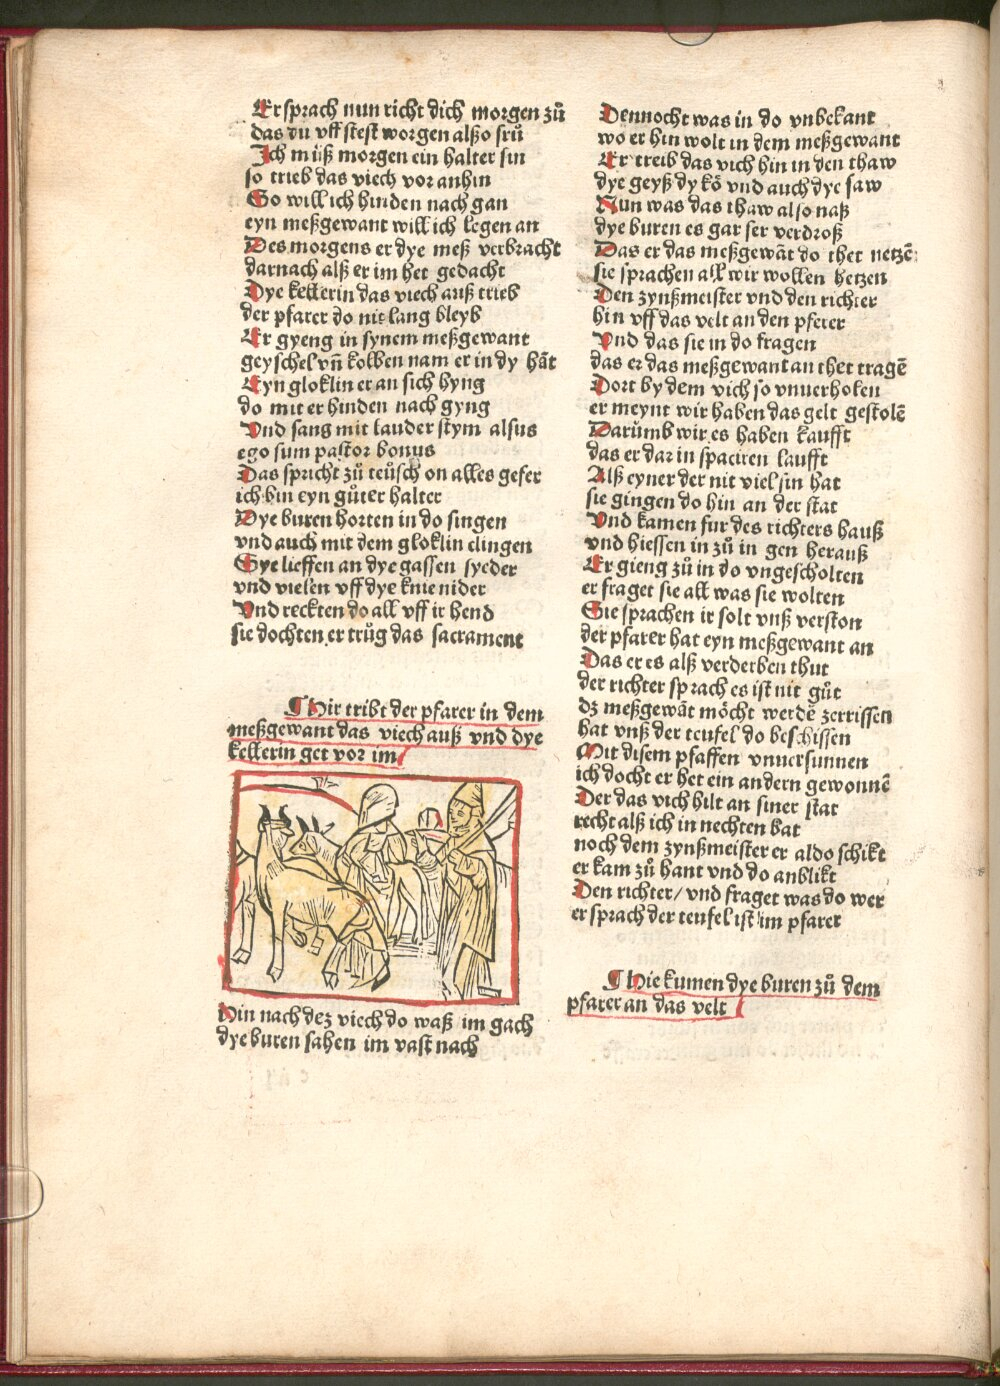 Er sprach nun richt dich morgen zů
das du vff stest worgen alßo frů
Ich můß morgen ein halter sin
so trieb das viech vor anhin
So will ich hinden nach gan
eyn meßgewant will ich legen an
Des morgens er dye meß verbracht
darnach alß er im het gedacht
Dye kellerin das viech auß trieb
der pfarer do nit lang bleyb
Er gyeng in synem meßgewant
geyschel vñ kolben nam er in dy hãt
Eyn gloklin er an sich hyng
do mit er hinden nach gyng
Vnd sang mit lauder stym alsus
ego sum pastor bonus
Das spricht zů teüsch on alles gefer
ich bin eyn gůter halter
Dye buren horten in do singen
vnd auch mit dem gloklin clingen
Sye lieffen an dye gassen syeder
vnd vielen vff dye knie nider
Vnd reckten do all vff ir hend
sie dochten er trůg das sacrament
¶ Hir tribt der pfarer in dem
meßgewant das viech auß vnd dye
kellerin get vor im
Hin nach dez viech do waß im gach
dye buren sahen im vast nach
Dennocht was in do vnbekant
wo er hin wolt in dem meßgewant
Er treib das vich hin in den thaw
dye geyß dy kõ vnd auch dye saw
Nun was das thaw also naß
dye buren es gar ser verdroß
Das er das meßgewãt do thet netzẽ
sie sprachen all wir wollen hetzen
Den zynßmeister vnd den richter
hin vff das velt an den pferer
Vnd das sie in do fragen
das er das meßgewant an thet tragẽ
Dort by dem vich so vnuerholen
er meynt wir haben das gelt gestolẽ
Darůmb wir es haben kaufft
das er dar in spaciren laufft
Alß eyner der nit viel sin hat
sie gingen do hin an der stat
Vnd kamen fur des richters hauß
vnd hiessen in zů in gen herauß
Er gieng zů in do vngescholten
er fraget sie all was sie wolten
Sie sprachen ir solt vnß verston
der pfarer hat eyn meßgewant an
Das er es alß verderben thut
der richter sprach es ist nit gůt
dz meßgewãt möcht werdẽ zerrissen
hat vnß der teufel do beschissen
Mit disem pfaffen vnuersunnen
ich docht er het ein andern gewonnẽ
Der das vich hilt an siner stat
recht alß ich in nechten bat
noch dem zynßmeister er aldo schikt
er kam zů hant vnd do anblikt
Den richter/ vnd fraget was do wer
er sprach der teufel ist im pfarer
¶ Hie kumen dye buren zů dem
pfarer an das velt